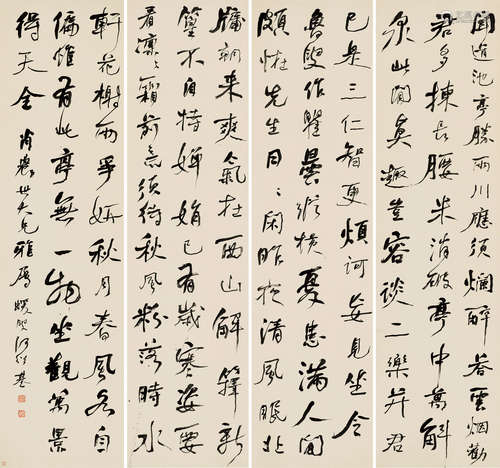 聞道池亭勝兩川應須爛醉答雲烟勸
君多揀長腰米消破亭中萬斛
泉此間真趣豈容談二樂并君
已是三仁智更煩訶妄見坐令
魯叟作瞿曇縱橫憂患滿人間
頗怪先生日〻閑昨夜清風眠北
牖朝來爽氣在西山解籜新
篁不自持嬋娟已有歲寒姿要
看凜〻霜前意須待秋風粉落時水
軒花榭兩爭妍秋月春風各自
偏惟有此亭無一物坐觀萬景
得天全
世大兄雅屬 蝯叟何紹基